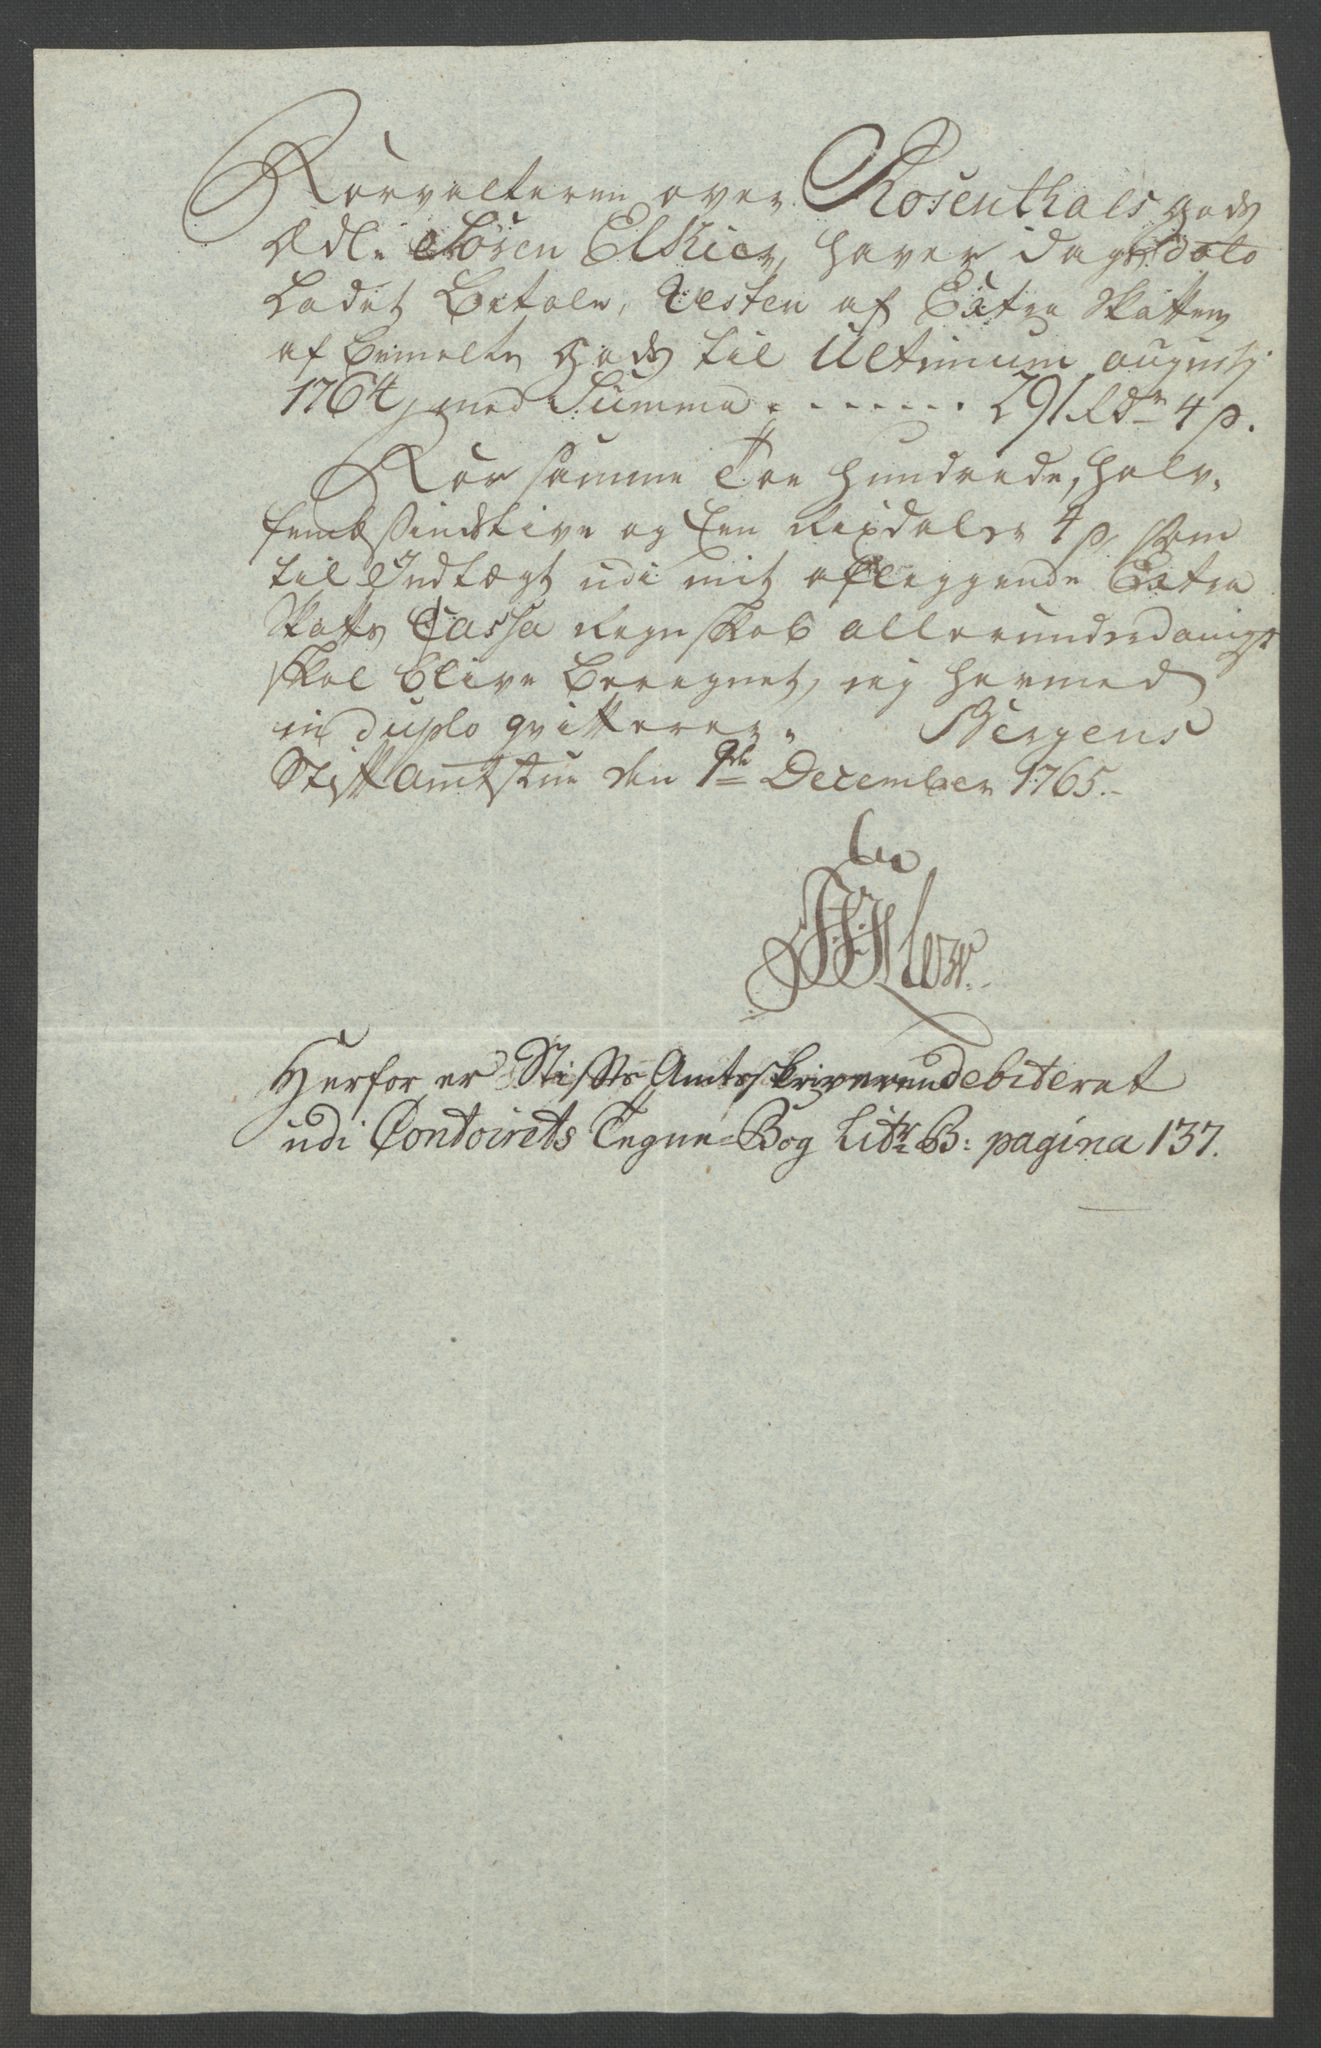 Forvalteren over Rosenthals Gods
Ædle Sören Elkier, haver Dags dato
Ladet Betale, Resten af Extra Skatten
af bemelte Gods til Ultimum augustij
1764, med Summa . . . . . . . 291 Rdr 4 s.
For samme Toe Hundrede, Halv,
femb Sindstive og Een Rixdaler 4 s, som
til Indtægt udi mit aflæggende Extra
Skatts Cassa Regnskab allerunderdanigst
skal blive beregnet, ieg hermed
in duplo qvitterer. Bergens
Stift Amtstue den 9de December 1765.
Herfor er Stifts Amtsskriveren debiteret
udi Contoirets Tegne-Bog Litr B: pagina 137.